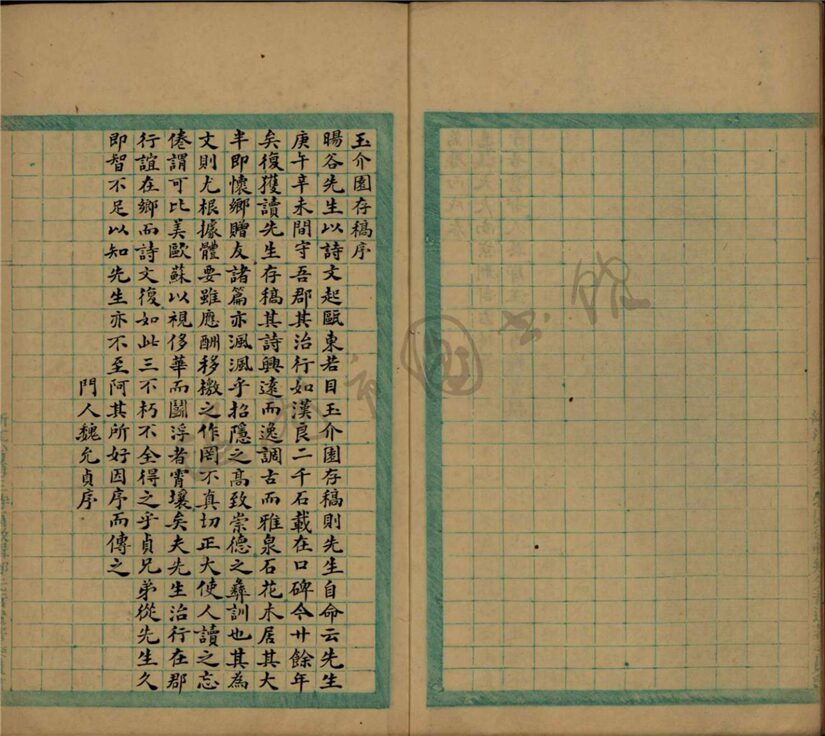 玉介園存稿序
暘谷先生以詩文起甌東若目玉介園存稿則先生自命云先生
庚午辛未間守吾郡其治行如漢良二千石載在口碑今廿餘年
矣復獲讀先生存稿其詩興遠而逸調古而雅泉石花木居其大
半即懷鄉贈友諸篇亦渢渢乎招隱之高致崇德之彞訓也其為
文則尤根據體要雖應酬移檄之作罔不真切正大使人讀之忘
倦謂可比美歐蘇以視侈華而鬭浮者霄壤矣夫先生治行在郡
行誼在鄉而詩文復如此三不朽不全得之乎貞兄弟從先生久
即智不足以知先生亦不至阿其所好因序而傳之
門人魏允貞序